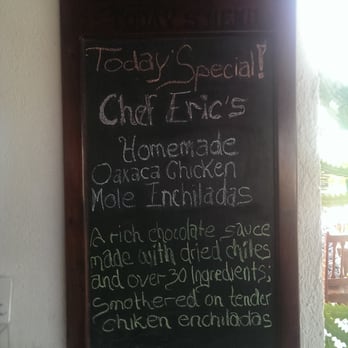 TODAY'S MENU
Today's Special!
Chef Eric's
Homemade
Oaxaca Chicken
Mole Inchiladas
A rich chocolate sauce
made with dried chiles
and over 30 Ingredients;
smothered on tender
chiken enchiladas